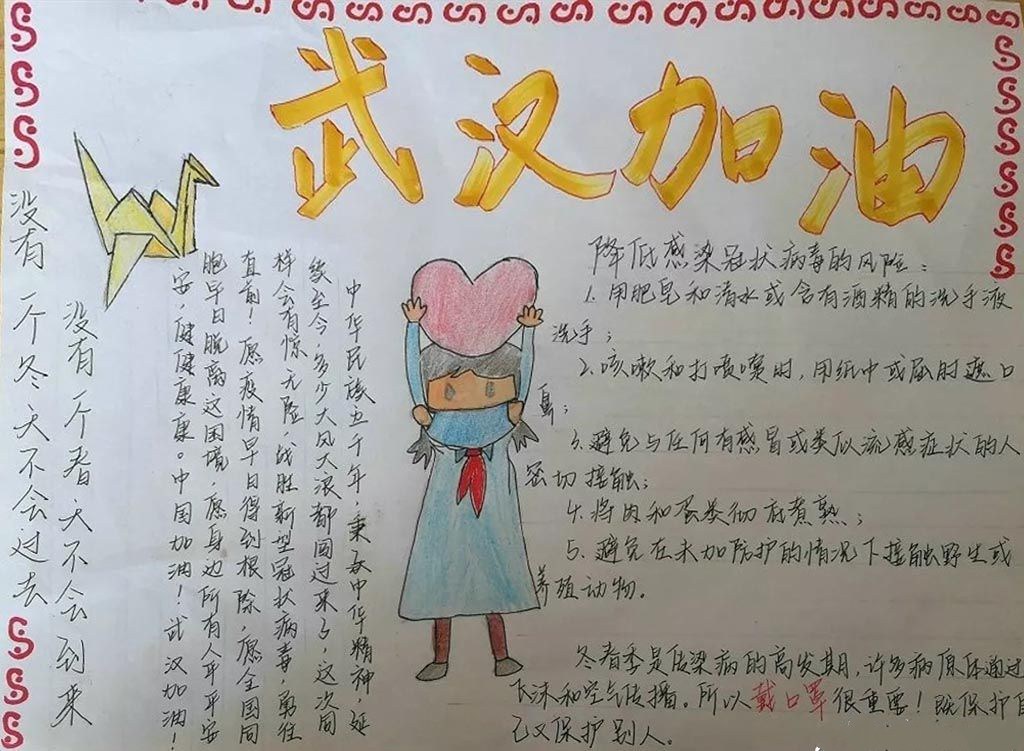 武汉加油
没有一个冬天不会过去
没有一个春天不会到来
中华民族五千年,秉承中华精神,延
续至今,多少大风大浪都闯过来了,这次同
样会有惊无险,战胜新型冠状病毒,勇往
直前!愿疫情早日得到根除,愿全国同
胞早日脱离这困境,愿身边所有人平平安
安,健健康康。中国加油!武汉加油!
降低感染冠状病毒的风险:
1.用肥皂和清水或含有酒精的洗手液
洗手;
2.咳嗽和打喷嚏时,用纸巾或屈肘遮口
鼻;
3.避免与任何有感冒或类似流感症状的人
密切接触;
4.将肉和蛋类彻底煮熟;
5.避免在未加防护的情况下接触野生或
养殖动物。
冬春季是传染病的高发期,许多病原体通过
飞沫和空气传播。所以戴口罩很重要!既保护自
己又保护别人。